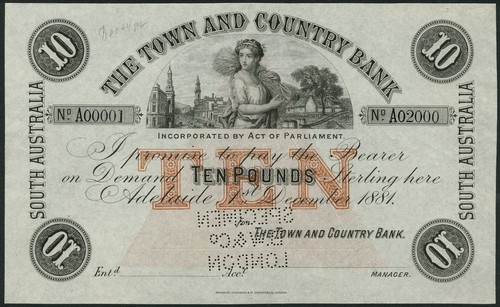 THE TOWN AND COUNTRY BANK
10
10
SOUTH AUSTRALIA
SOUTH AUSTRALIA
No A00001
No A02000
INCORPORATED BY ACT OF PARLIAMENT.
I promise to pay the Bearer
on Demand TEN POUNDS Sterling here
TEN
Adelaide 1st December 1881.
SPECIMEN
For THE TOWN AND COUNTRY BANK.
B.W & Co
LONDON
10
10
Entd.
Acct.
MANAGER.